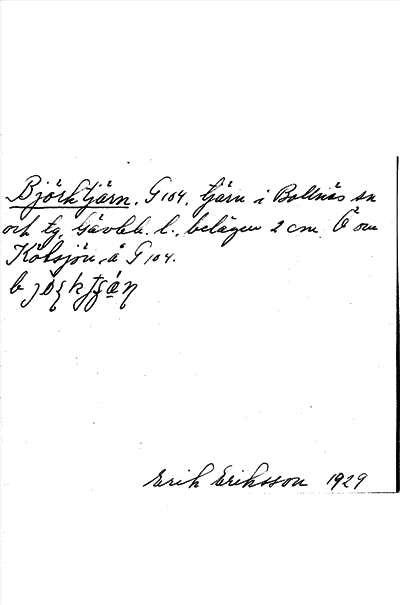 Björktjärn. G 104. Tjärn i Bollnäs sn
och tg, Gävleb. l., belägen 2 cm. Ö om
Kölsjön, å G 104.
Erik Eriksson 1929